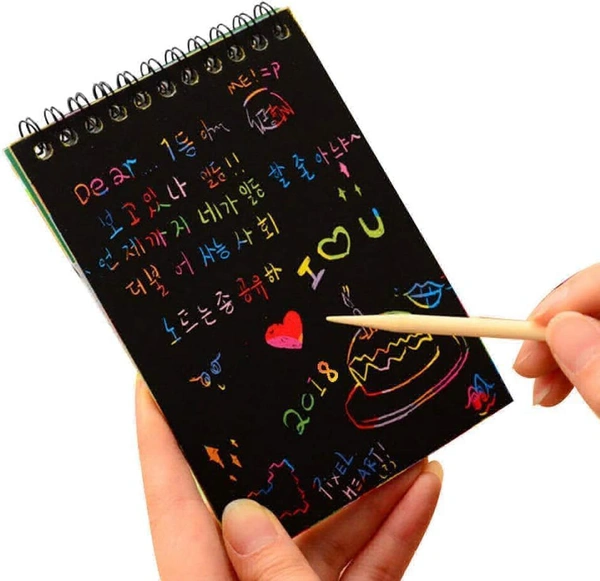 ME! =P
Dear... 1등아~
보고있나 일등!!
언제까지 네가 일등 할 줄 아냐~
더불어 사능 사회
노트는 좀 공유하
I ♡ U
2018
PIXEL
HEART!